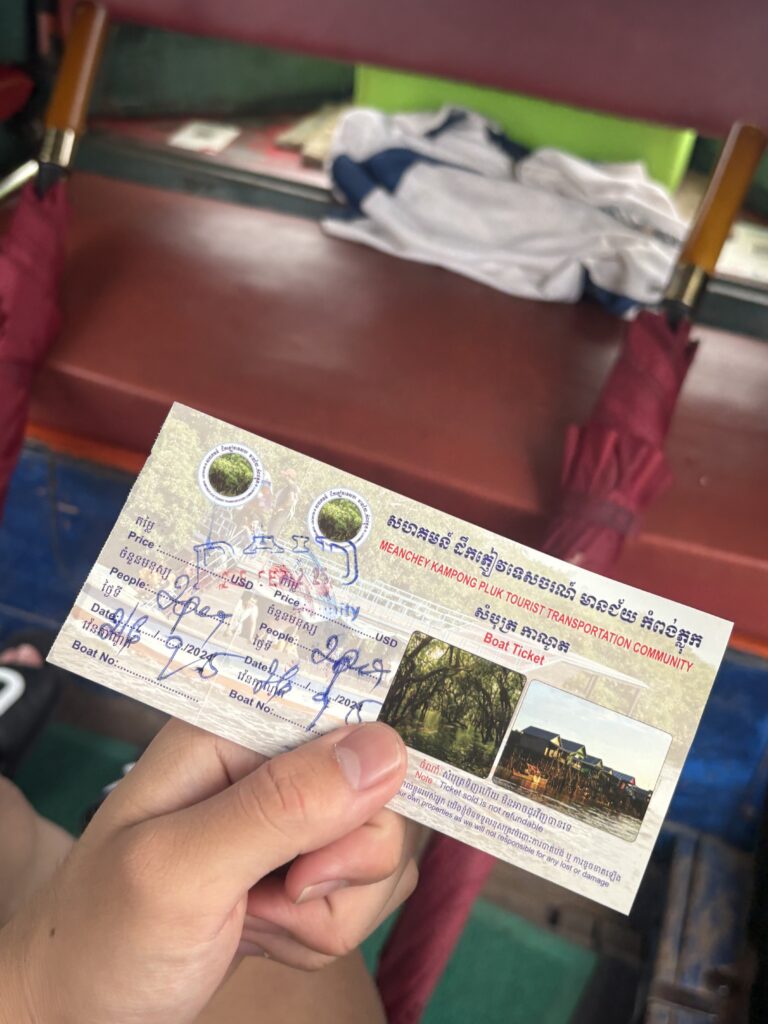 សហគមន៍ ដឹកភ្ញៀវទេសចរណ៍ មានជ័យ កំពង់ភ្លុក
MEANCHEY KAMPONG PLUK TOURIST TRANSPORTATION COMMUNITY
សំបុត្រ កាណូត
Boat Ticket
តម្លៃ
Price :.................. USD
ចំនួនមនុស្ស
People:
ថ្ងៃទី
Date: /2024
លេខកាណូត
Boat No:....................
PAID
តម្លៃ
Price :.................. USD
ចំនួនមនុស្ស
People:
ថ្ងៃទី
Date: /2024
លេខកាណូត
Boat No:....................
ចំណាំ: សំបុត្រទិញហើយ មិនអាចដូរវិញបានទេ
Note : Ticket sold is not refundable
our own properties as we will not responsible for any lost or damage